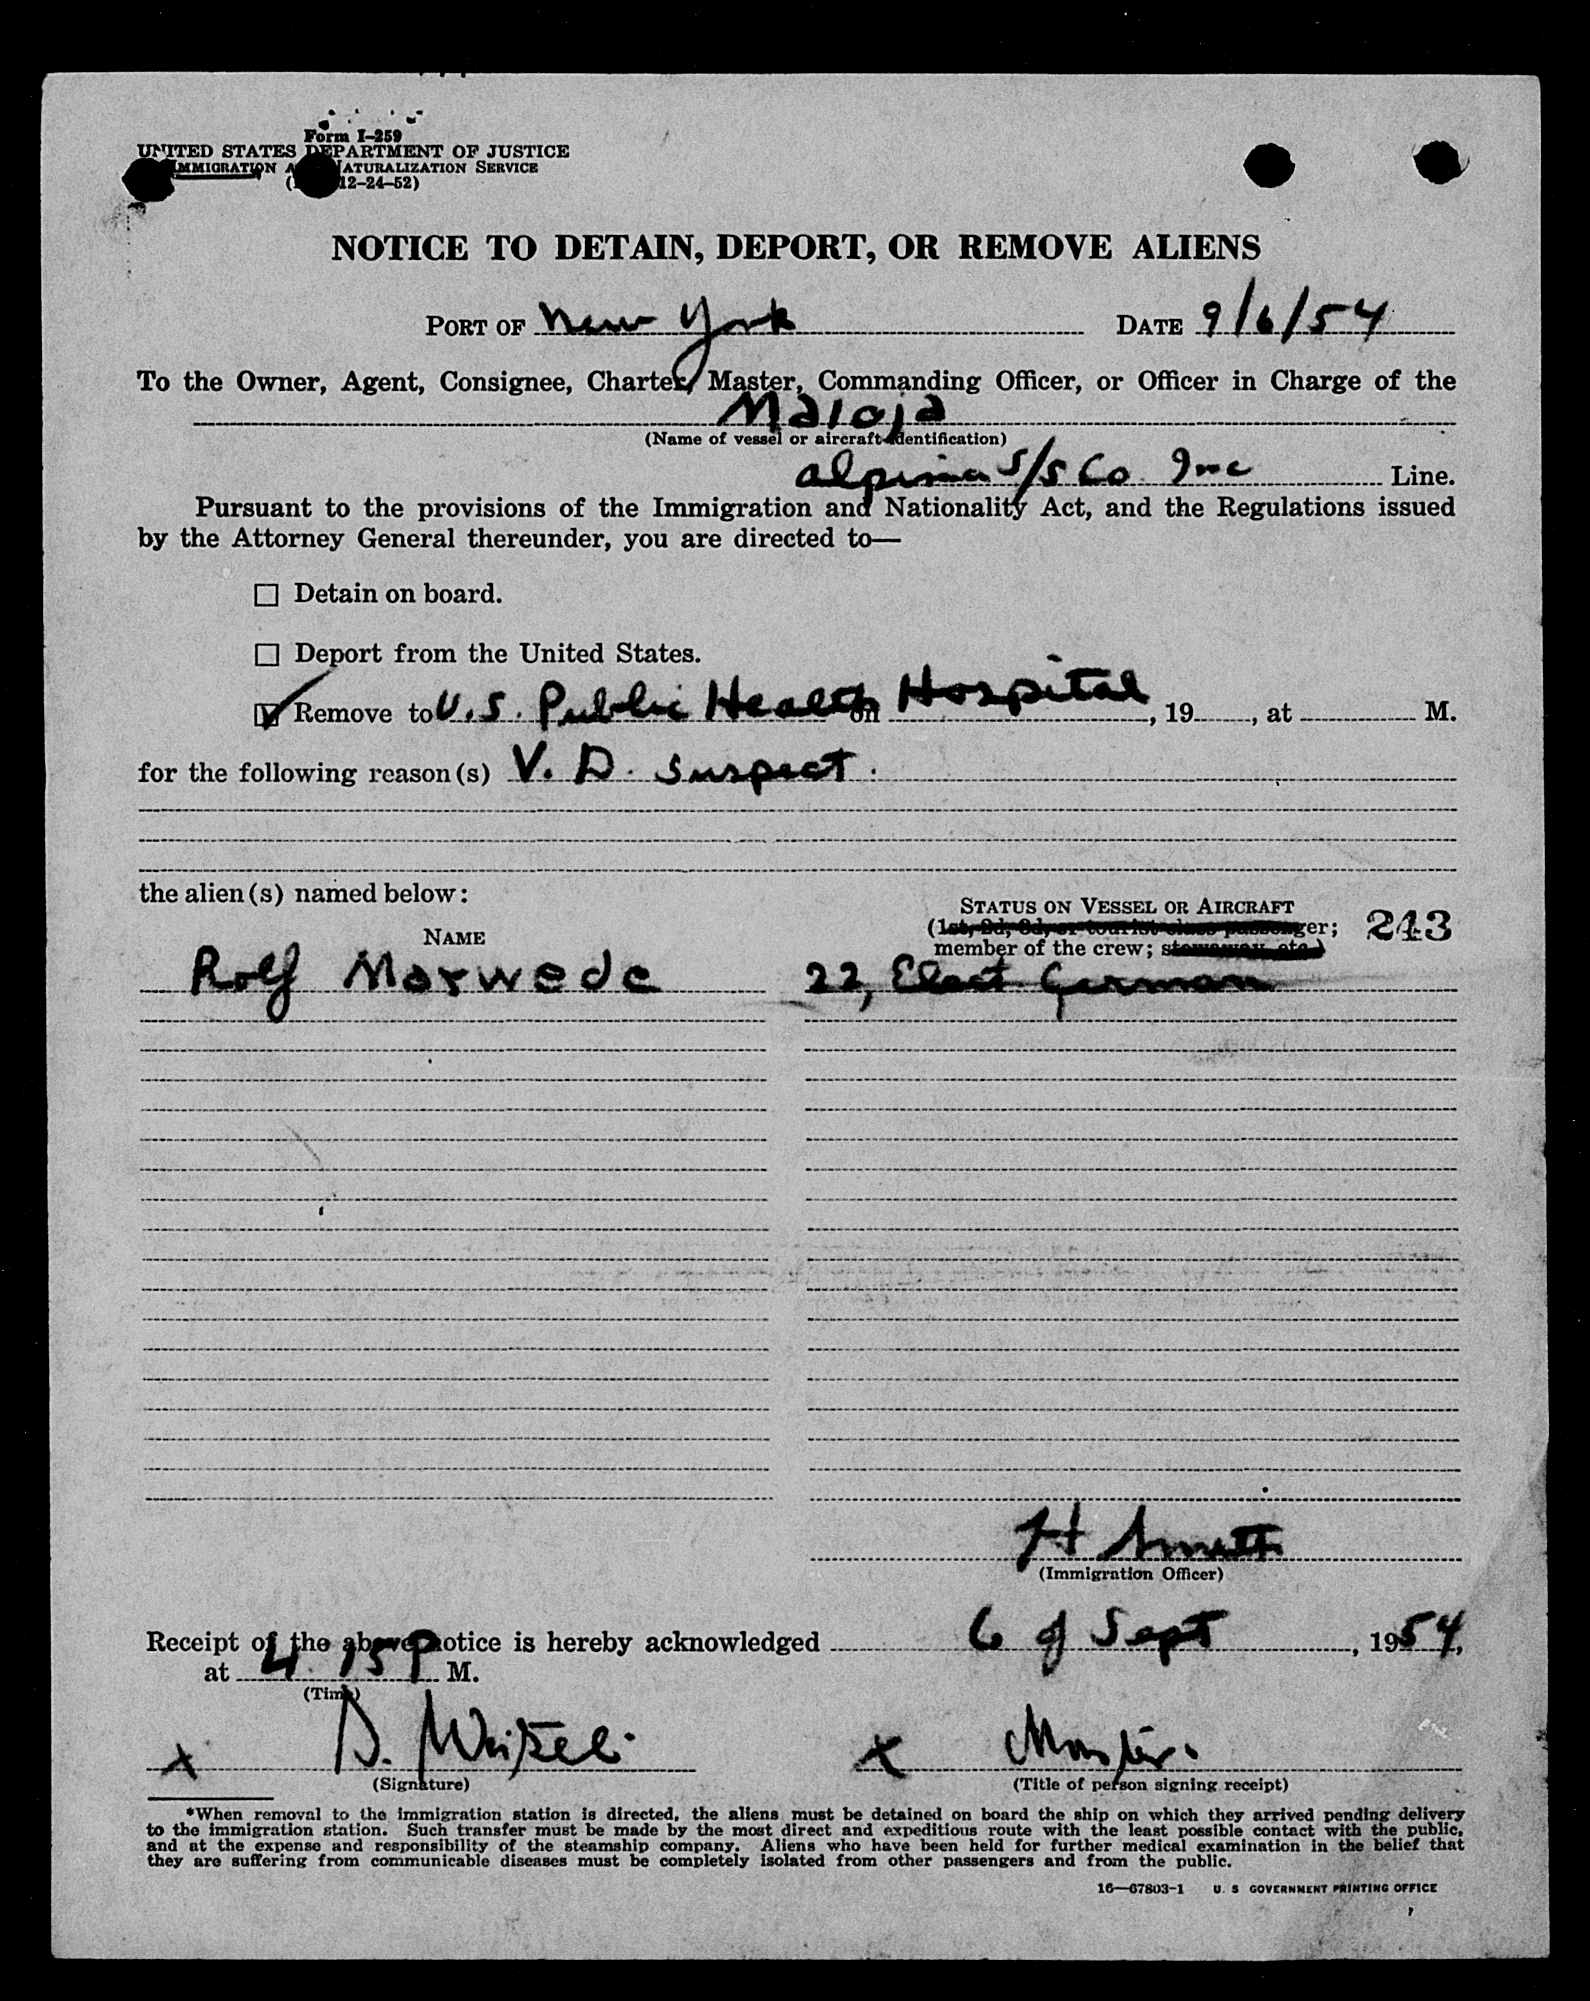 Form I-259
UNITED STATES DEPARTMENT OF JUSTICE
IMMIGRATION NATURALIZATION SERVICE
12-24-52)
NOTICE TO DETAIN, DEPORT, OR REMOVE ALIENS
PORT OF New York DATE 9/6/54
To the Owner, Agent, Consignee, Charter, Master, Commanding Officer, or Officer in Charge of the
Maloja
(Name of vessel or aircraft identification)
Alpina S/S Co. Inc Line.
Pursuant to the provisions of the Immigration and Nationality Act, and the Regulations issued
by the Attorney General thereunder, you are directed to—
☐ Detain on board.
☐ Deport from the United States.
☑ Remove to U.S. Public Health Hospital on , 19 , at M.
for the following reason(s) V. D. Suspect.
the alien(s) named below:
STATUS ON VESSEL OR AIRCRAFT
(1st, 2d, 3d, or tourist class passenger; 243
NAME
member of the crew; stowaway, etc.)
Rolf Morwede 22, Elect German
H
(Immigration Officer)
Receipt of the above notice is hereby acknowledged 6 of Sept, 1954,
at 4.15 P M.
(Time)
x D. x Master.
(Signature) (Title of person signing receipt)
*When removal to the immigration station is directed, the aliens must be detained on board the ship on which they arrived pending delivery
to the immigration station. Such transfer must be made by the most direct and expeditious route with the least possible contact with the public,
and at the expense and responsibility of the steamship company. Aliens who have been held for further medical examination in the belief that
they are suffering from communicable diseases must be completely isolated from other passengers and from the public.
16—67803-1 U. S GOVERNMENT PRINTING OFFICE